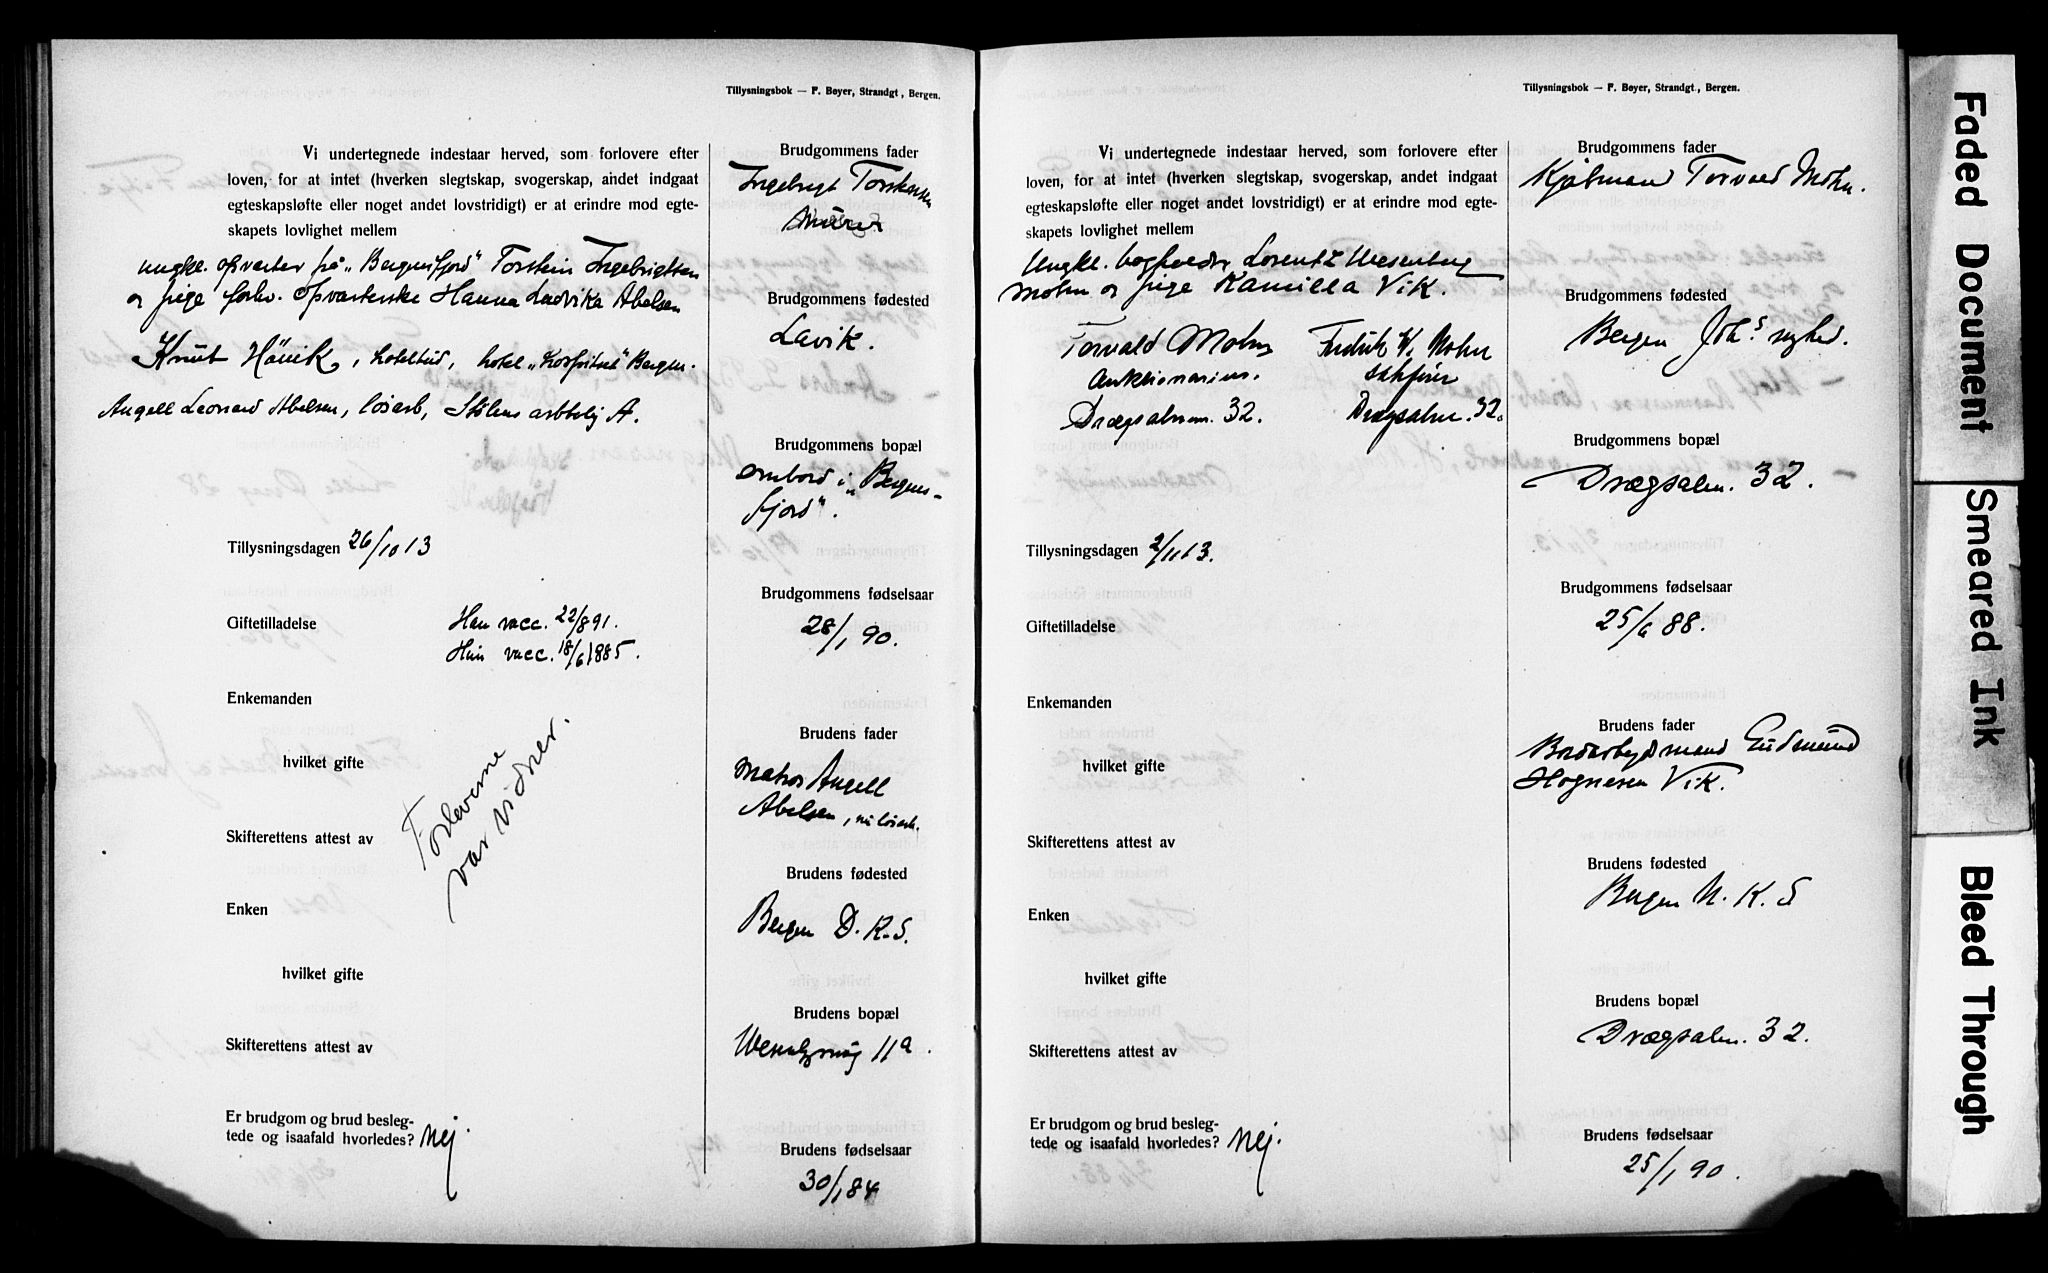 Tillysningsbok — F. Bøyer, Strandgt., Bergen.
Vi undertegnede indestaar herved, som forlovere efter
loven, for at intet (hverken slegtskap, svogerskap, andet indgaat
egteskapsløfte eller noget andet lovstridigt) er at erindre mod egte-
skapets lovlighet mellem
ungkl. opvarter på „Bergensfjord" Torstein Ingebrigtsen
og pige forhv. opvarterske Hanna Ludvika Abelsen
Knut , hotel Bergen.
Angell Leonard Abelsen, løsarb, Stølens arbbolig A.
Tillysningsdagen 26/10 13
Giftetilladelse
Han vacc. 22/8 91.
Hun vacc. 18/6 1885.
Enkemanden
hvilket gifte
Forloverne
var vidner.
Skifterettens attest av
Enken
hvilket gifte
Skifterettens attest av
Er brudgom og brud besleg-
tede og isaafald hvorledes? Nej.
Brudgommens fader
Ingebrigt Torstensen
Brudgommens fødested
Lavik.
Brudgommens bopæl
ombord i „Bergens-
fjord".
Brudgommens fødselsaar
28/1 90.
Brudens fader
Matros Angell
Abelsen, nu løsarb.
Brudens fødested
Bergen D. K. S.
Brudens bopæl
11a.
Brudens fødselsaar
30/1 84
Tillysningsbok — F. Bøyer, Strandgt., Bergen.
Vi undertegnede indestaar herved, som forlovere efter
loven, for at intet (hverken slegtskap, svogerskap, andet indgaat
egteskapsløfte eller noget andet lovstridigt) er at erindre mod egte-
skapets lovlighet mellem
Ungkl. bogholder Lorentz Wesenberg
Mohn og pige Kamilla Vik.
Torvald Mohn
Auktionarius.
Drægsalmen. 32.
Fredrik W. Mohn
Drægsalm. 32.
Tillysningsdagen 2/11 13.
Giftetilladelse
Enkemanden
hvilket gifte
Skifterettens attest av
Enken
hvilket gifte
Skifterettens attest av
Er brudgom og brud besleg-
tede og isaafald hvorledes? Nej.
Brudgommens fader
Kjøbmand Torvald Mohn.
Brudgommens fødested
Bergen Joh.s
Brudgommens bopæl
Drægsalm. 32.
Brudgommens fødselsaar
25/6 88.
Brudens fader
Gudmund
Hognesen Vik.
Brudens fødested
Bergen N. K. S
Brudens bopæl
Drægsalm. 32.
Brudens fødselsaar
25/1 90.
Faded Document
Smeared Ink
Bleed Through